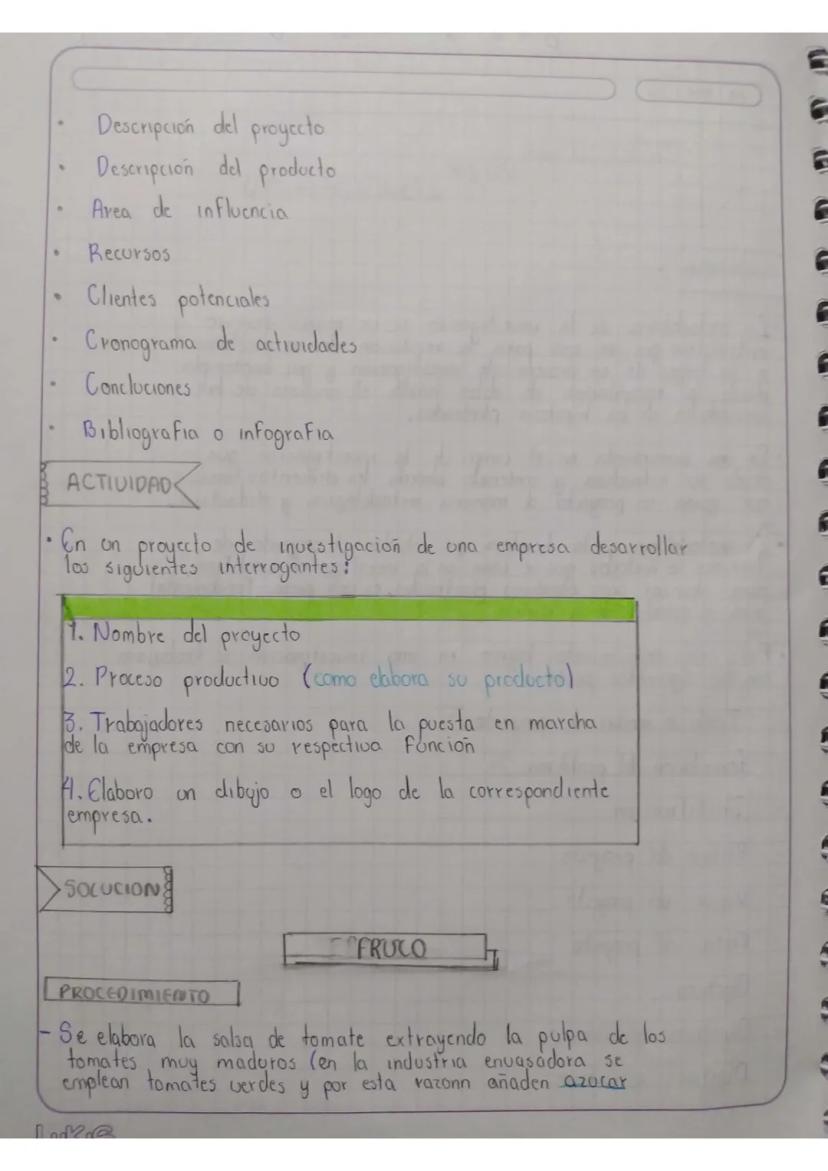 • Descripción del proyecto
• Descripción del producto
• Area de influencia
• Recursos
• Clientes potenciales
• Cronograma de actividades
• Concluciones
• Bibliografia o infografia
ACTIVIDAD
• En un proyecto de investigación de una empresa desarrollar
los siguientes interrogantes:
1. Nombre del proyecto
2. Proceso productivo (como elabora su producto)
3. Trabajadores necesarios para la puesta en marcha
de la empresa con su respectiva función
4. Elaboro un dibujo o el logo de la correspondiente
empresa.
SOLUCION
FRUCO
PROCEDIMIENTO
- Se elabora la salsa de tomate extrayendo la pulpa de los
tomates muy maduros (en la industria envasadora se
emplean tomates verdes y por esta razonn añaden azocar